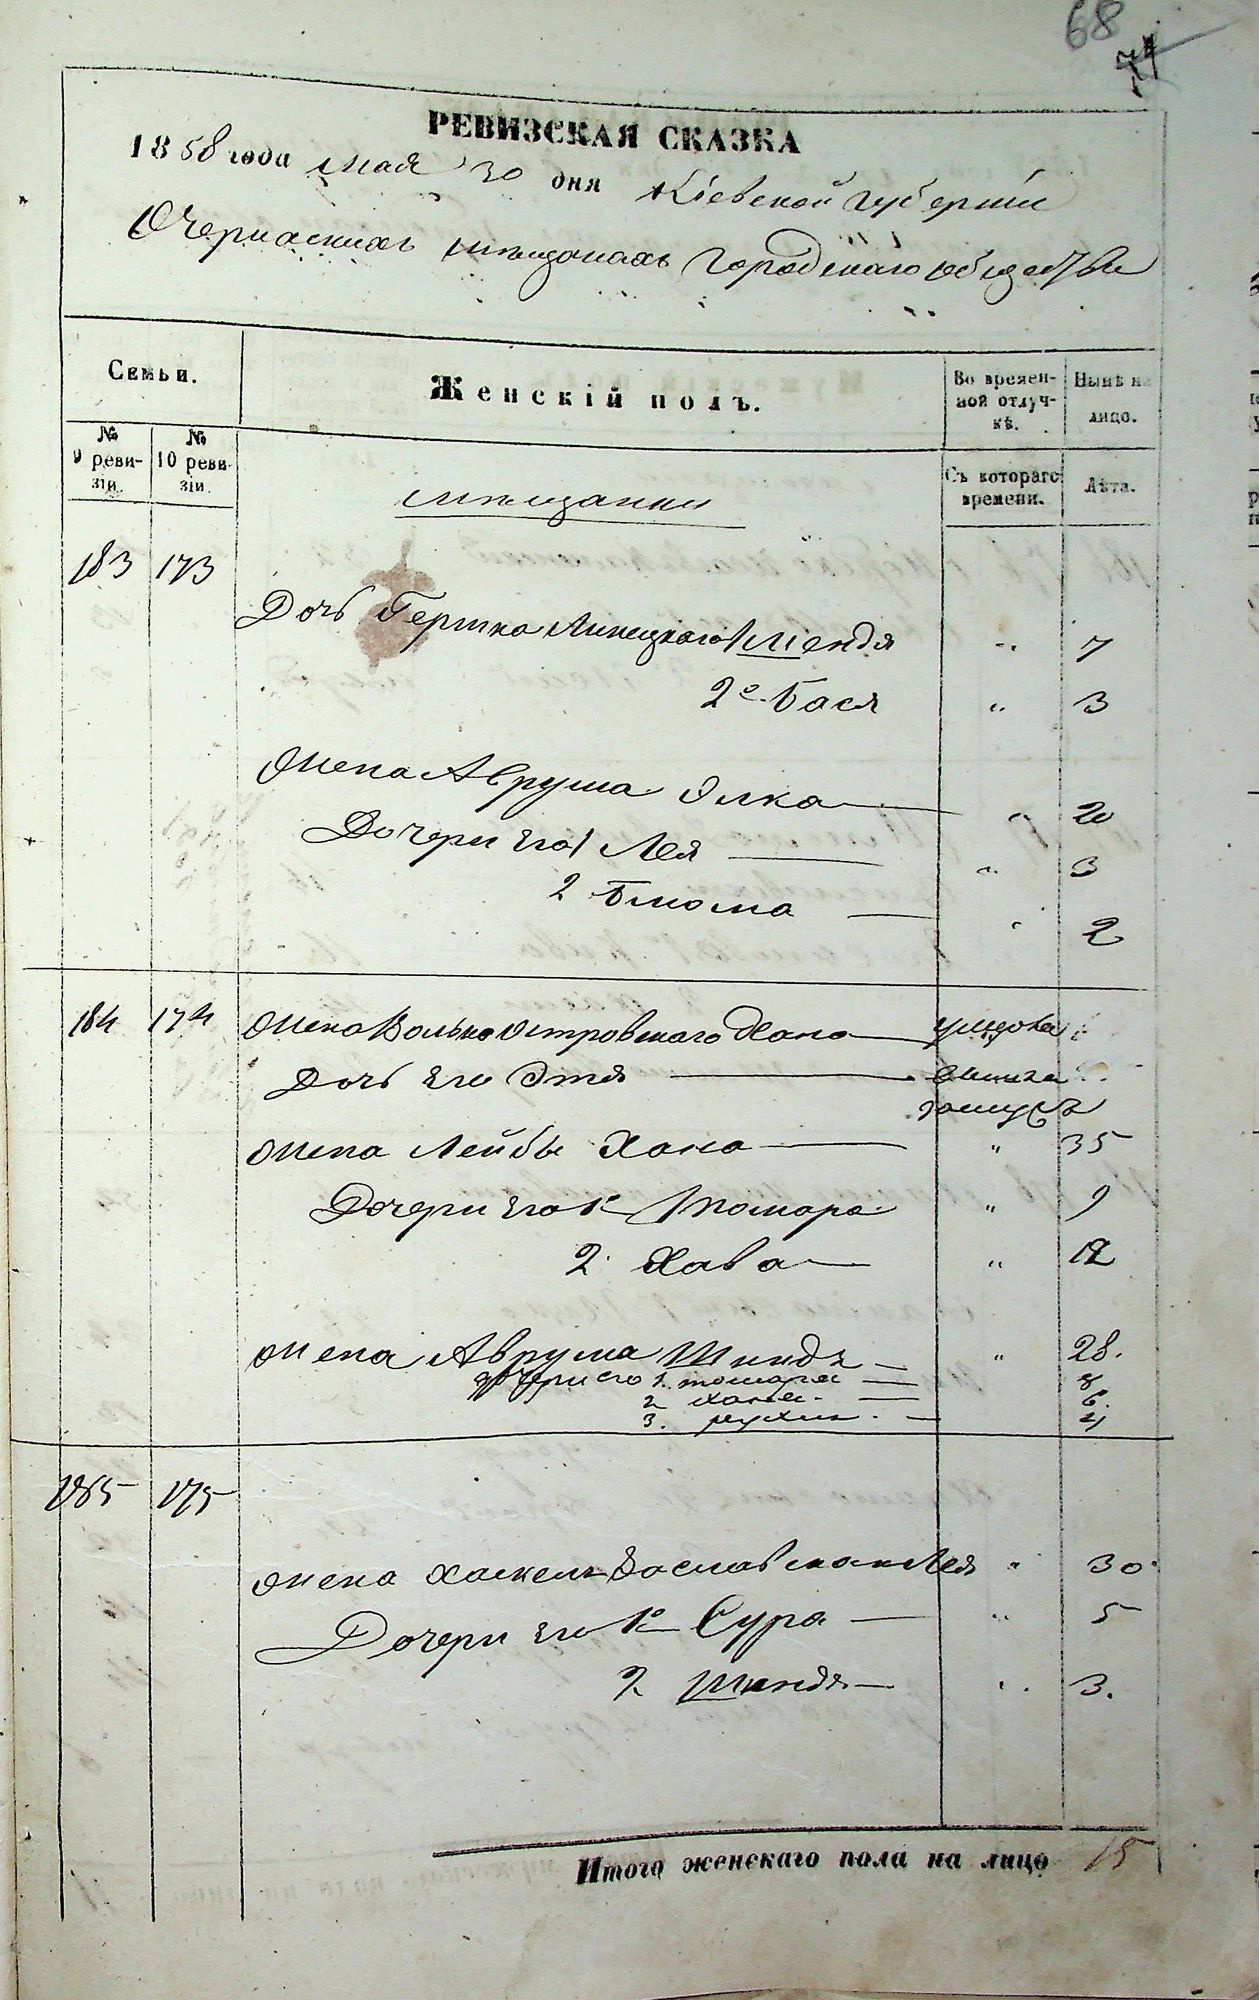 68
74
РЕВИЗСКАЯ СКАЗКА
1858 года мая 30 дня Кіевской губерніи
О Черкаскихъ мѣщанахъ городскаго общества
Семьи.
Женскій полъ.
Во времен-
ной отлуч-
кѣ.
Нынѣ на
лицо.
№
9 реви-
зіи.
№
10 реви-
зіи.
Съ котораго
времени.
Лѣта.
мѣщанки
183 173
Дочь Гершка Липецкаго 1 Шендя " 7
2е Бася " 3
Жена Аврума Элка " 20
Дочери его 1 Лея " 3
2 Блюма " 2
184 174 Жена Волька Островскаго Хана умерла
Дочь его Этля вышла
замужъ
Жена Лейбы Хана " 35
Дочери его 1е Томара " 9
2 Хава " 12
Жена Аврума Шиндя " 28.
дочери его 1. томара 8
2 6.
3. рухля 4
185 175
Жена Хаскеля Заславскаго Лея " 30
Дочери его 1е Сура " 5
2 Шиндя " 3.
Итого женскаго пола на лицо 15